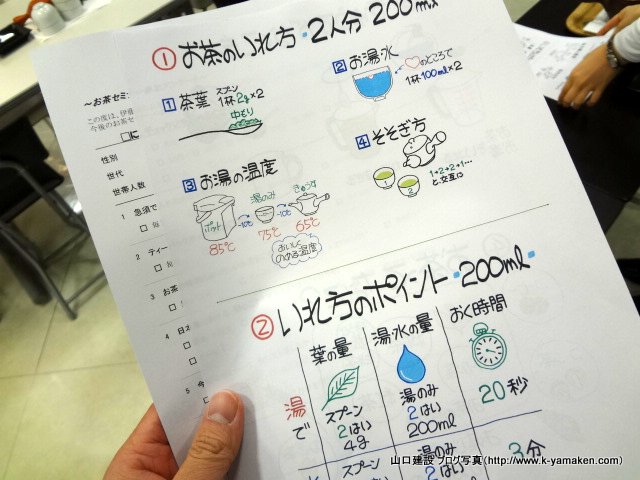 ① お茶のいれ方・2人分 200ml
1 茶葉 スプーン 1杯2g×2
中もり
2 お湯・水
♡のところで
1杯100ml×2
3 お湯の温度
ポット
湯のみ
きゅうす
-10℃
-10℃
85℃
75℃
65℃
おいしく
のめる温度
4 そそぎ方
1
2
1+2+2+1…
と交互に
～お茶セミ
この度は、伊藤
今後のお茶セ
□に
性別
世代
世帯人数
1 急須で
2 ティー
3 お茶
4 日本
5 今
② いれ方のポイント・200ml・
葉の量
湯・水の量
おく時間
湯で
スプーン
2はい
4g
湯のみ
2はい
200ml
20秒
スプーン
湯のみ
2はい
3分
山口建設 ブログ写真(http://www.k-yamaken.com)